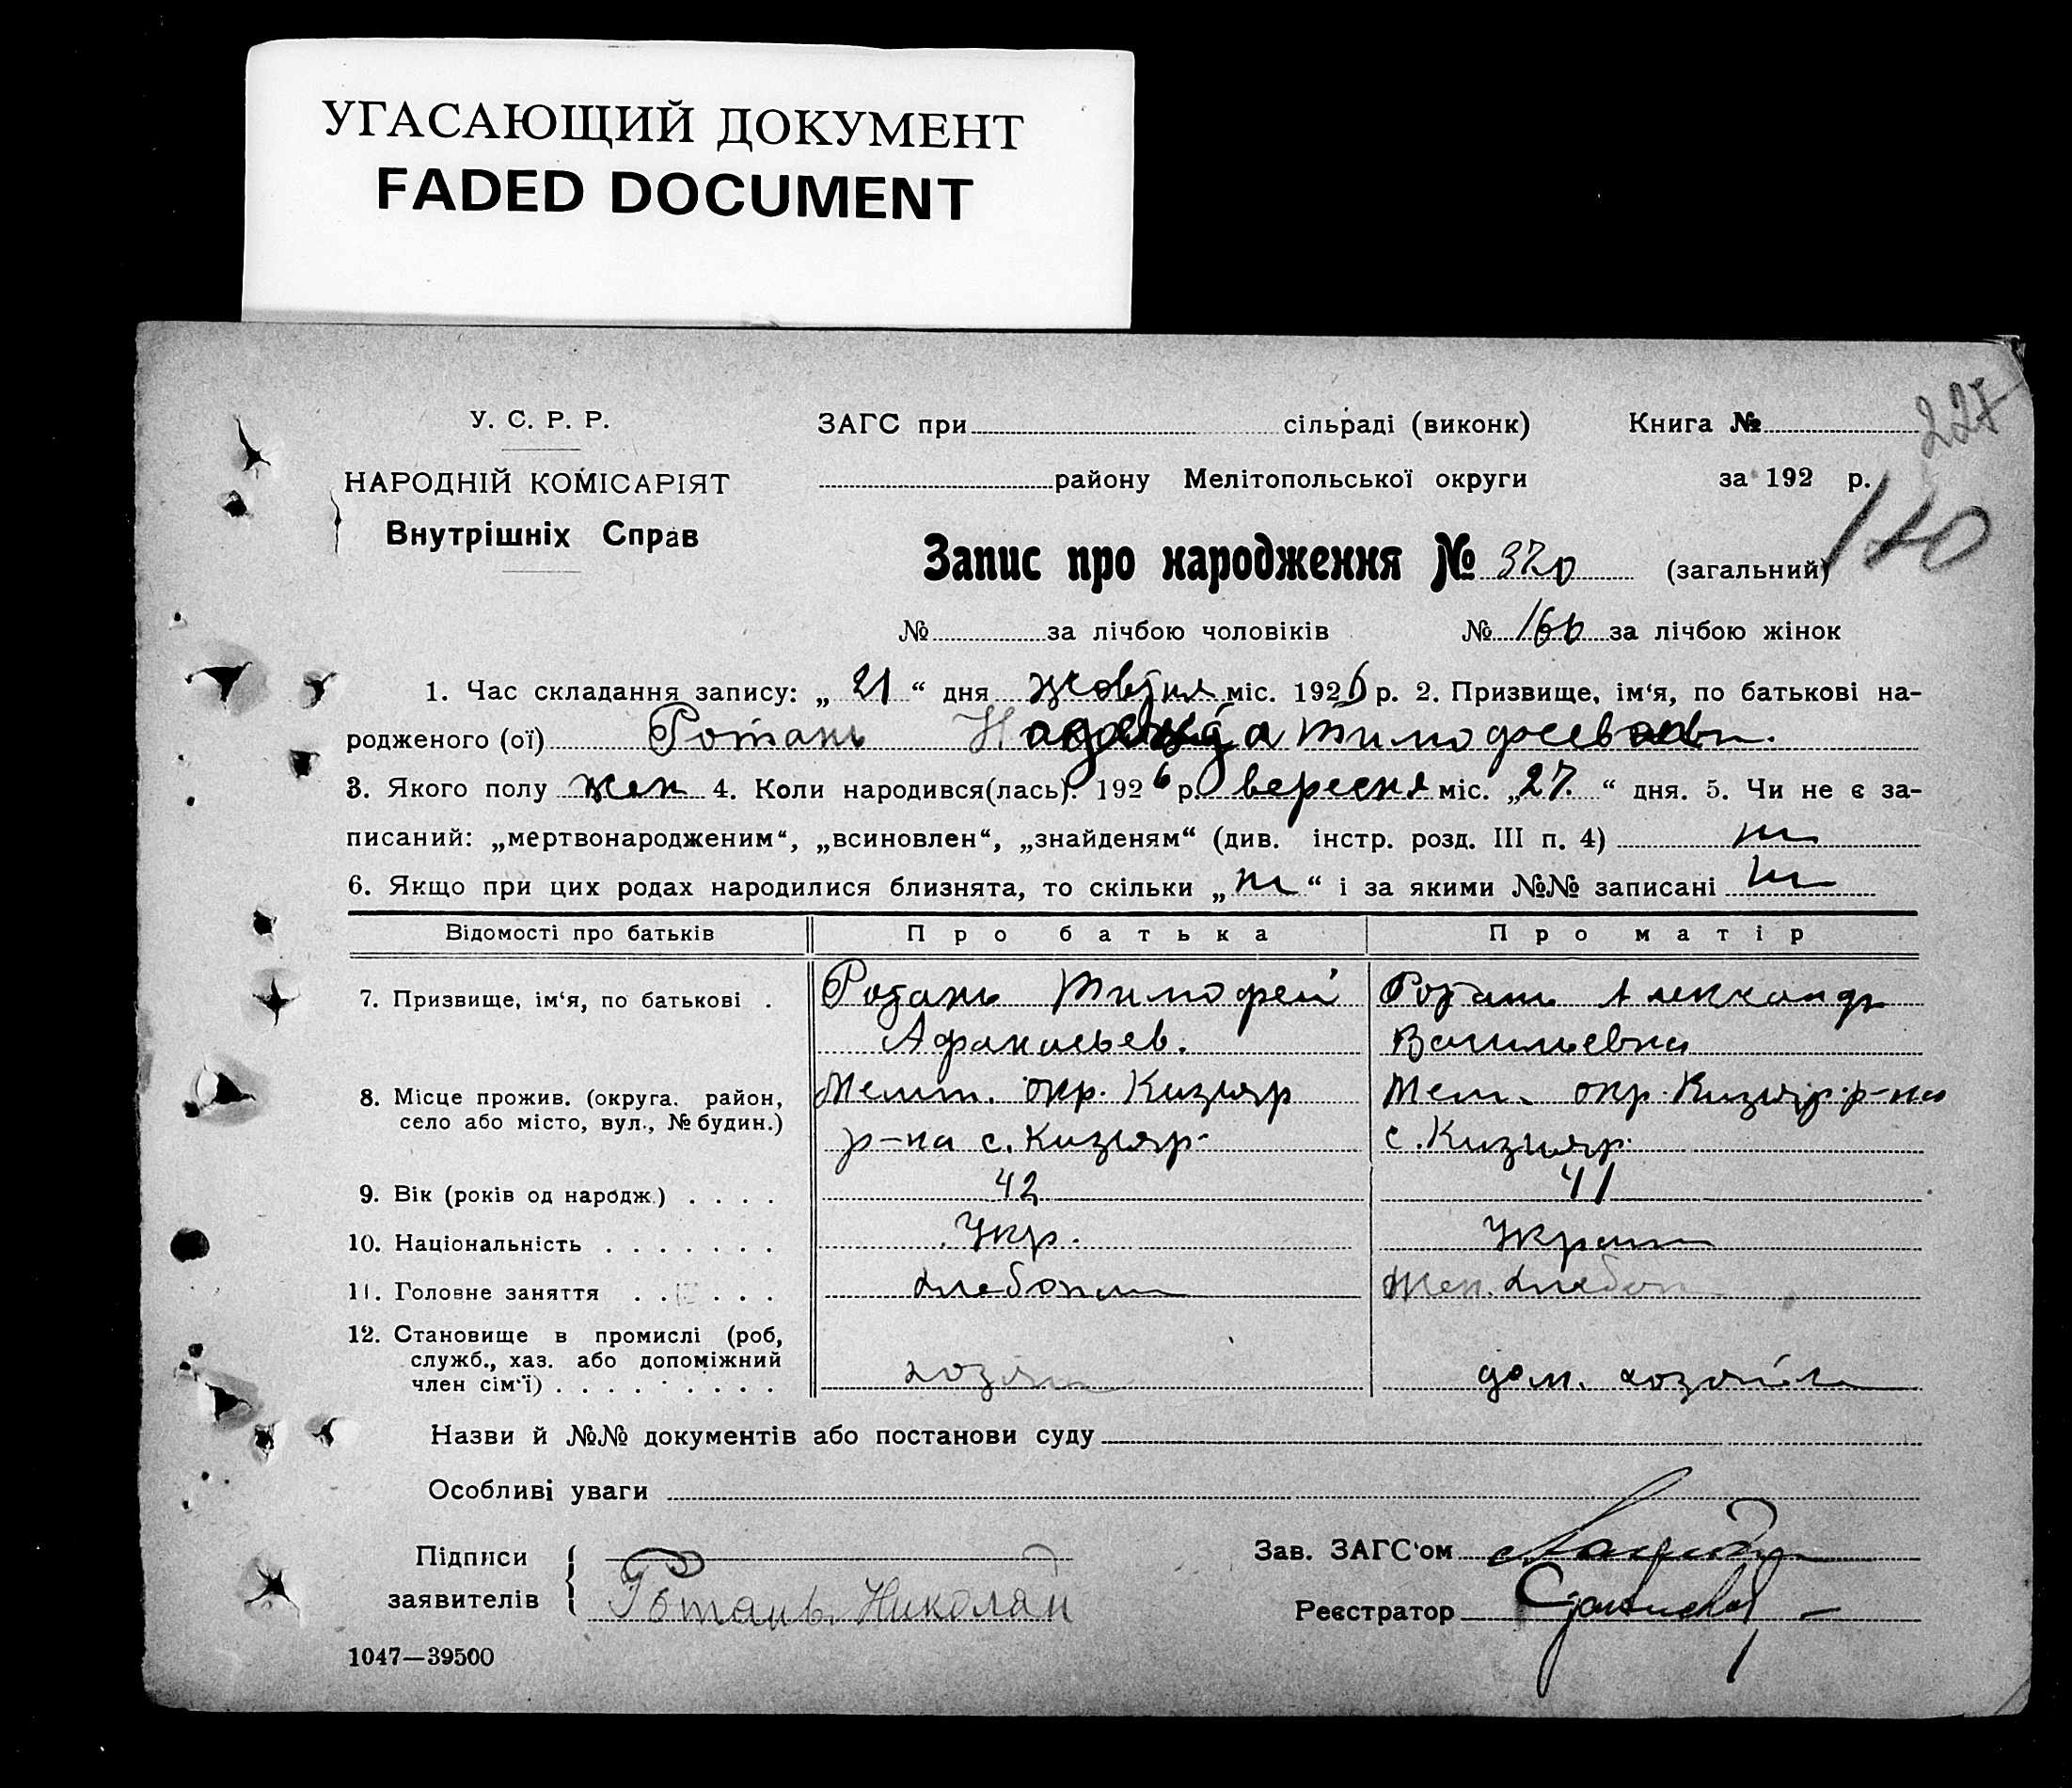 УГАСАЮЩИЙ ДОКУМЕНТ
FADED DOCUMENT
227
110
У. С. Р. Р.
НАРОДНІЙ КОМІСАРІЯТ
Внутрішніх Справ
ЗАГС при сільраді (виконк) Книга №
району Мелітопольської округи за 192 р.
Запис про народження № 320 (загальний)
№ за лічбою чоловіків № 166 за лічбою жінок
1. Час складання запису: „ 21 “ дня жовтня міс. 1926 р. 2. Призвище, ім‘я, по батькові на-
родженого (ої) Ротань Надежда Тимофеевна.
3. Якого полу жен 4. Коли народився(лась): 1926 р. вересня міс. „27.“ дня. 5. Чи не є за-
писаний: „мертвонародженим“, „всиновлен“, „знайденям“ (див. інстр. розд. III п. 4)
6. Якщо при цих родах народилися близнята, то скільки „ “ і за якими №№ записані
Відомості про батьків Про батька Про матір
7. Призвище, ім‘я, по батькові . Ротань Тимофей Ротань Александр
Афанасьев. Васильевна
8. Місце прожив. (округа. район, село або місто, вул., № будин.) Мелит. окр. Кизияр Мел. окр. Кизияр. р-на
р-на с. Кизияр. с. Кизияр.
9. Вік (років од народж.) . . . . 42 41
10. Національність . . . . . . . Укр. Украин
11. Головне заняття . . . . . хлебопаш Жен. хлебоп
12. Становище в промислі (роб, служб., хаз. або допоміжний член сім‘ї) . . . . . . . . . хозяин дом. хозяйка
Назви й №№ документів або постанови суду
Особливі уваги
Підписи заявителів { Ротань Николай
Зав. ЗАГС‘ом
Реєстратор
1047—39500